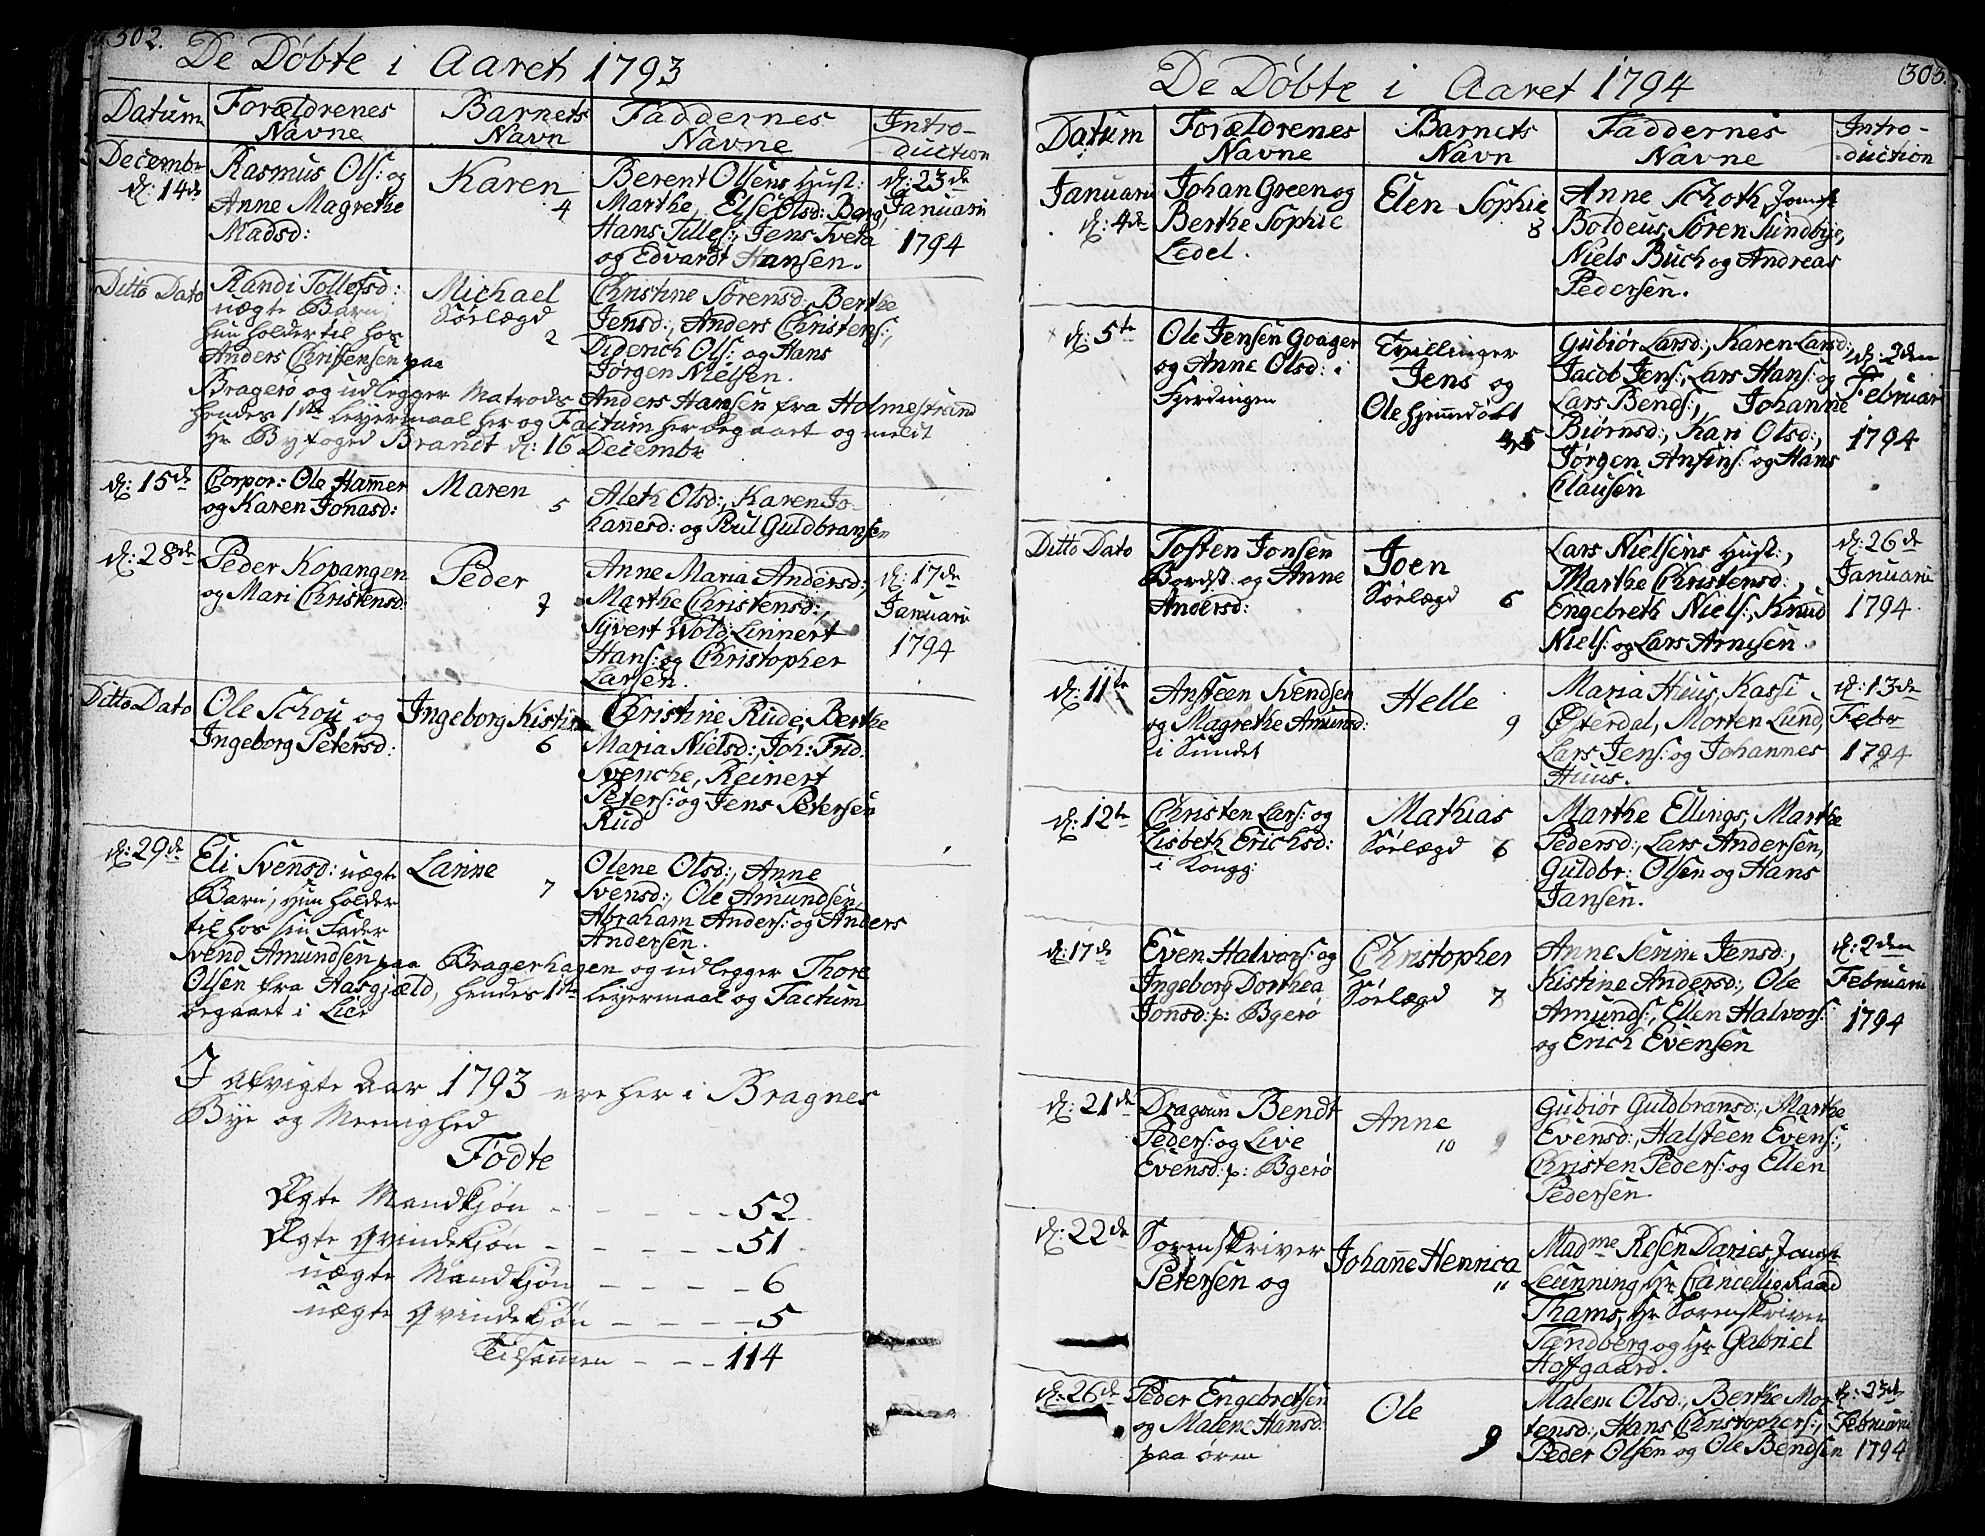 302.
De Döbte i Aaret 1793
Datum
Forældrenes
Navne
Barnets
Navn
Faddernes
Navne
Intro-
duction
Decembr
d: 14de
Rasmus Ols: og
Anne Magrethe
Madsd:
Karen
4
Berent Olsens Hust:
Marthe, Else Olsd: Berg,
Hans Tillefs:, Jens Tveta
og Edvardt Hansen.
d: 23de
Januarii
1794
Ditto Dato
Randi Tollefsd:
uægte Barn,
hun holder til hos
Anders Christensen paa
Michael
Sörlægd
2
Christine Sörensd: Berthe
Jensd:, Anders Christens:,
Diderich Ols: og Hans
Jörgen Nielsen.
Bragerö og udlegger Matrods Anders Hansen fra Holmestrand
hendes 1ste Leyermaal her og Factum her begaaet og meldt
Hr Byfoged Brandt d: 16 Decembr
d: 15de
Corpor: Ole Hammer
og Karen Jonasd:
Maren
5
Aleth Olsd:, Karen Jo-
hannesd: og Poul Guldbransen
d: 28de
Peder Kopangen
og Mari Christensd:
Peder
7
Anne Maria Andersd:,
Marthe Christensd:,
Syvert Wold, Linnert
Hans: og Christopher
Larsen.
d: 17de
Januarii
1794
Ditto Dato
Ole Schou og
Ingeborg Petersd:
Ingeborg Kistine
6
Christine Rude, Berthe
Maria Nielsd:, Joh: Frid:
Svenche, Reinert
Peters: og Jens Petersen
Rud
d: 29de
Eli Svensd: uægte
Barn, hun holder
til hos sin Fader
Svend Amundsen paa Bragerhagen og udlegger Thore
Larine
7
Olene Olsd:, Anne
Svensd:, Ole Amundsen,
Abraham Anders: og Anders
Andersen.
Olsen fra Aasgjæld, hendes 1te Leyermaal og Factum
begaaet i Lier
I afvigte Aar 1793 ere her i Bragnes
Bye og Meenighed
Födte
Ægte Mandkjön - - - - 52
Ægte Qvindekjön - - - - 51
uægte Mandkjön - - - - 6
uægte Qvindekjön - - - - 5
Tilsammen - - - 114
303.
De Döbte i Aaret 1794
Datum
Forældrenes
Navne
Barnets
Navn
Faddernes
Navne
Intro-
duction
Januarii
d: 4de
Johan Green og
Berthe Sophie
Ledel.
Elen Sophie
8
Anne Schoth, Jomf:
Boldeus, Sören Sundbye,
Niels Buch og Andreas
Pedersen.
d: 5te
Ole Jensen Goager
og Anne Olsd: i
Fjerdingen
Tvillinger
Jens og
Ole hjemedöbt
4,5
Gubiör Larsd:, Karen Larsd:,
Jacob Jens:, Lars Hans: og
Lars Bends:, Johanne
Biörnsd:, Kari Olsd:,
Jörgen Ansens: og Hans
Clausen
d: 2den
Februari
1794
Ditto Dato
Tosten Jonsen
Bordst: og Anne
Andersd:
Joen
Sörlægd
6
Lars Nielsens Hust:,
Marthe Christensd:,
Engebreth Niels:, Knud
Niels: og Lars Arnesen.
d: 26de
Januarii
1794.
d: 11te
Ansteen Svendsen
og Magrethe Amunsd:
i Sundet
Helle
9
Maria Huus, Kassi
Österdal, Morten Lund,
Lars Jens: og Johannes
Huus.
d: 13de
Febr
1794
d: 12te
Christen Lars: og
Lisbeth Erichsd:
i Kongg:
Mathias
Sörlægd
6
Marthe Ellings, Marthe
Pedersd:, Lars Andersen,
Guldbr: Olsen og Hans
Jansen.
d: 17de
Even Halvors: og
Ingeborg Dorthea
Jonsd: p: Bgerö
Christopher
Sörlægd
7
Anne Serine Jensd:,
Kistine Andersd:, Ole
Amunds:, Ellen Halvors:
og Erich Evensen
d: 2den
Februarii
1794
d: 21de
Dragoun Bendt
Peders: og Live
Evensd: p: Bgerö
Anne
10
Gubiör Guldbransd:, Marthe
Evensd:, Halsteen Evens:,
Christen Peders: og Ellen
Pedersen.
d: 22de
Sorenskriver
Petersen og
Johanne Henrica
11
Madme Resen Daries, Jomf:
Leunning, Hr Cancellie Raad
Thams, Hr Sorenskriver
Tandberg og Hr Gabriel
Hofgaard.
d: 26de
Peder Engebretsen
og Malene Hansd:
paa ören
Ole
9
Malene Olsd:, Berthe Mor-
tensd:, Hans Christophers:,
Peder Olsen og Ole Bendsen
d: 23de
Februarii
1794